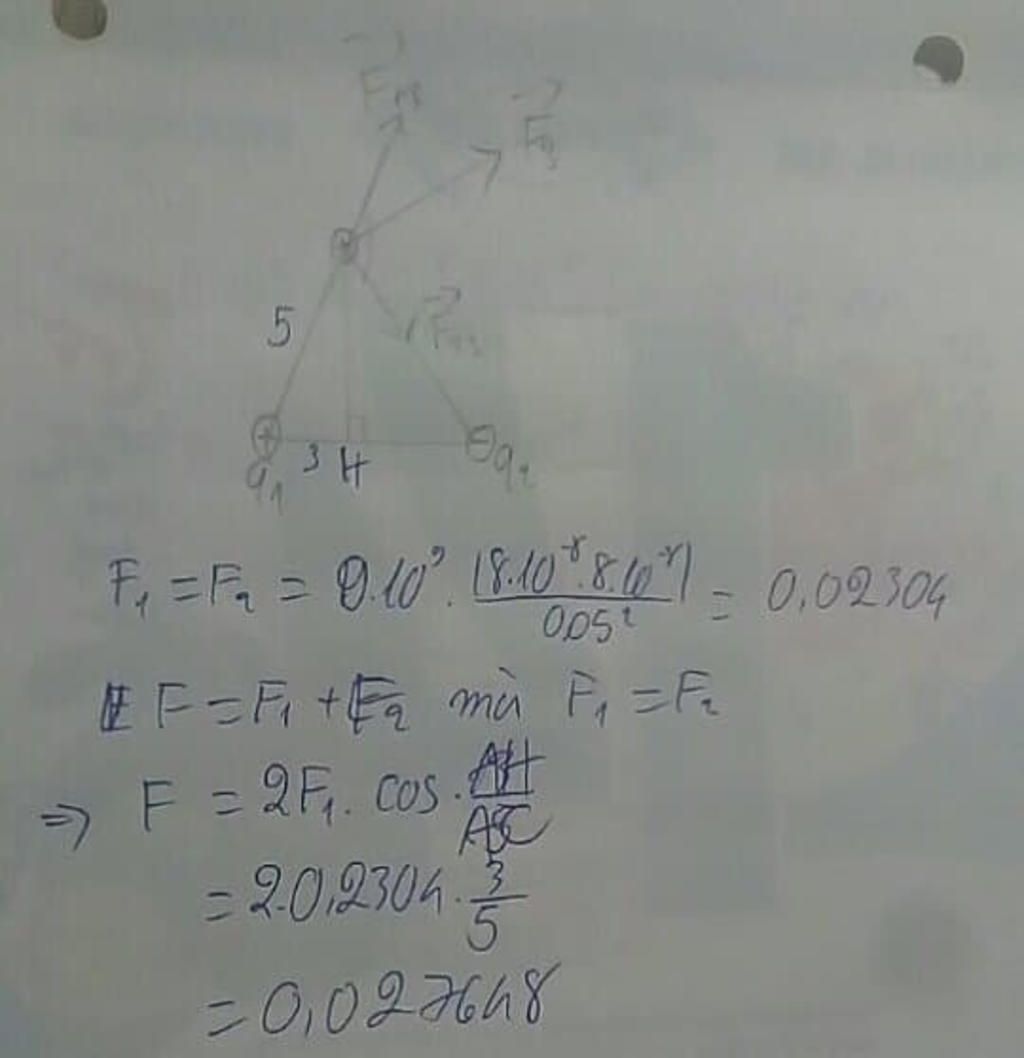 F₃
5
3 H
q₁
q₂
F₁ = F₂ = 9.10⁹ . |8.10⁻⁸.8.10⁻⁸| / 0,05² = 0,02304
F = F₁ + F₂ mà F₁ = F₂
=> F = 2F₁. cos . AH / AC
= 2.0,2304 . 3 / 5
= 0,027648